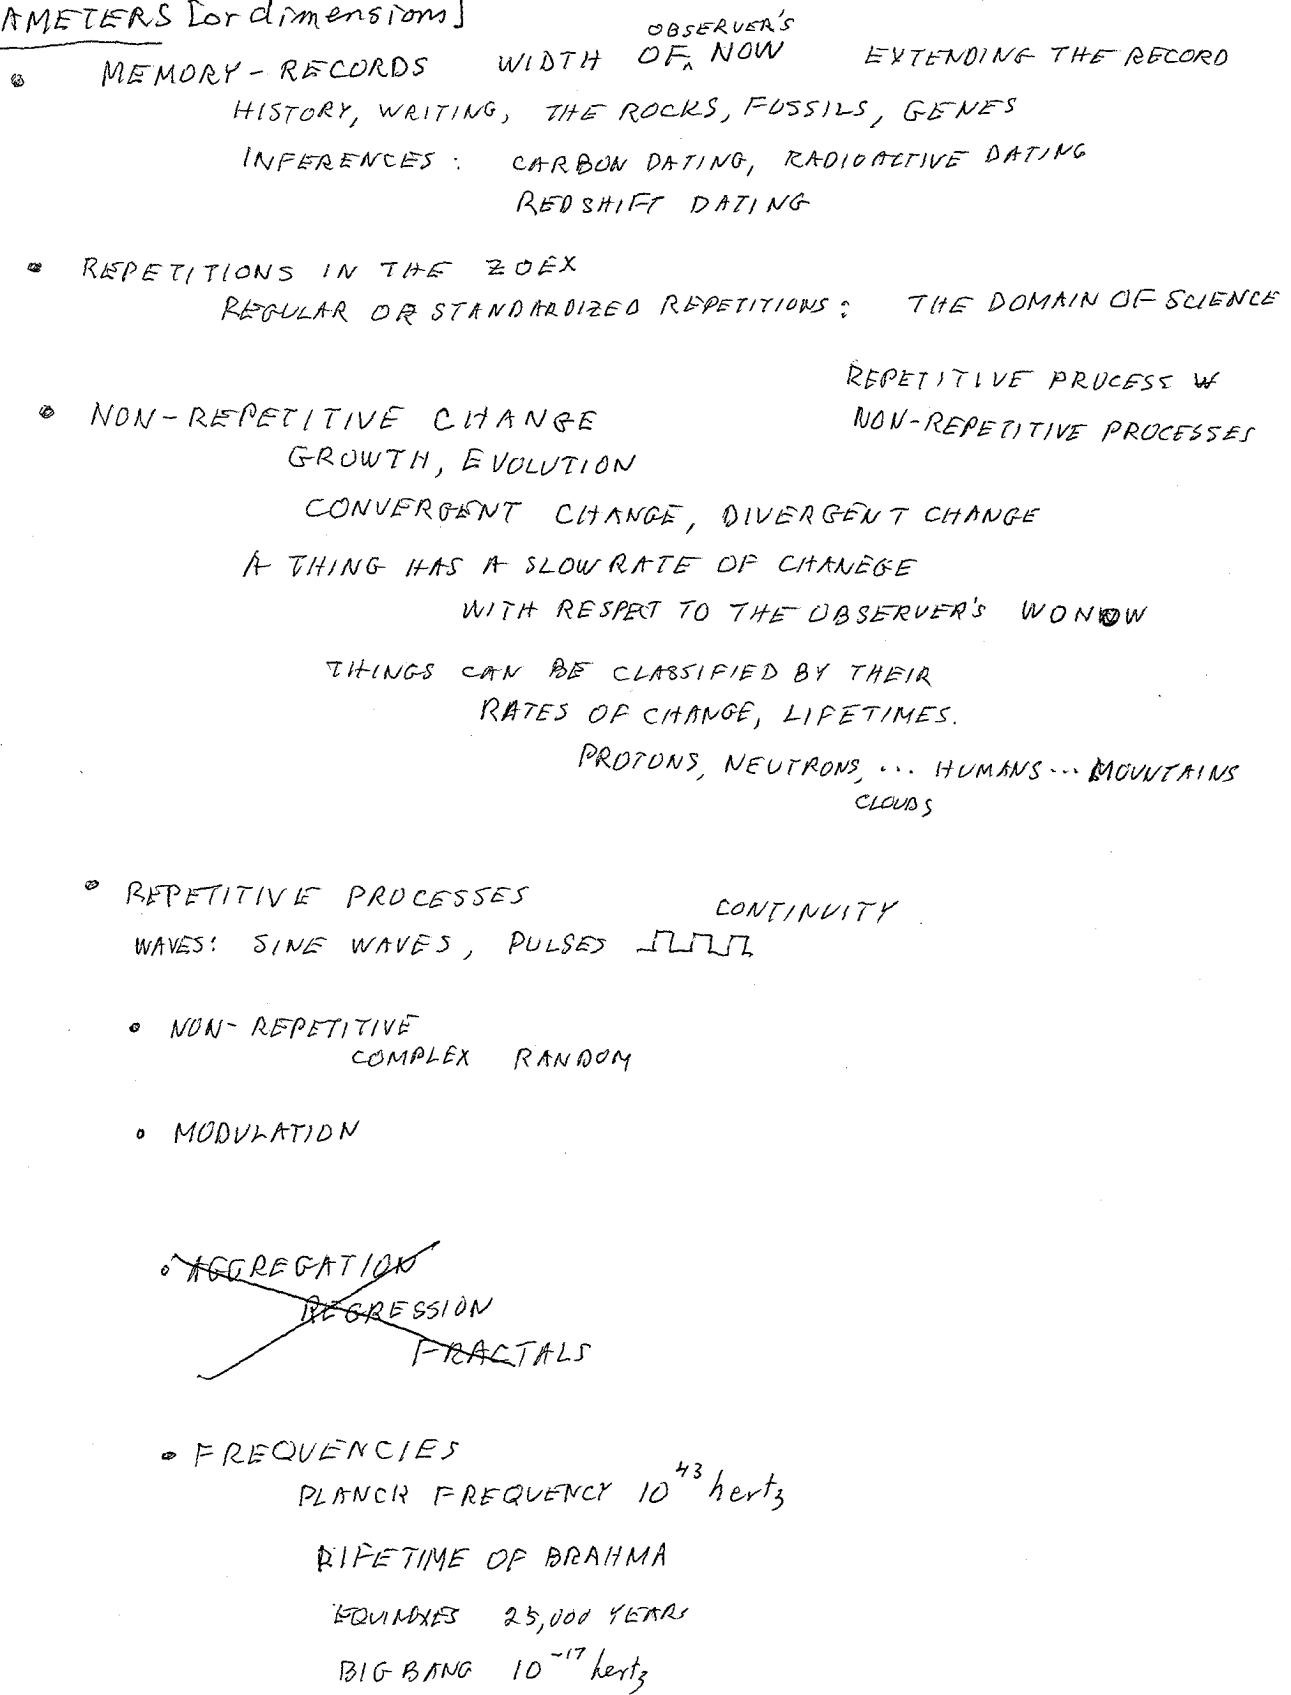 AMETERS [or dimensions]
OBSERVER'S
• MEMORY - RECORDS WIDTH OF ‸ NOW EXTENDING THE RECORD
HISTORY, WRITING, THE ROCKS, FOSSILS, GENES
INFERENCES: CARBON DATING, RADIOACTIVE DATING
REDSHIFT DATING
• REPETITIONS IN THE ZOEX
REGULAR OR STANDARDIZED REPETITIONS: THE DOMAIN OF SCIENCE
REPETITIVE PROCESS W
• NON-REPETITIVE CHANGE NON-REPETITIVE PROCESSES
GROWTH, EVOLUTION
CONVERGENT CHANGE, DIVERGENT CHANGE
A THING HAS A SLOW RATE OF CHANEGE
WITH RESPECT TO THE OBSERVER'S WONDOW
THINGS CAN BE CLASSIFIED BY THEIR
RATES OF CHANGE, LIFETIMES.
PROTONS, NEUTRONS, ... HUMANS ... MOUNTAINS
CLOUDS
• REPETITIVE PROCESSES CONTINUITY
WAVES: SINE WAVES, PULSES
• NON-REPETITIVE
COMPLEX RANDOM
• MODULATION
• AGGREGATION
REGRESSION
FRACTALS
• FREQUENCIES
PLANCK FREQUENCY 10^43 hertz
LIFETIME OF BRAHMA
EQUINOXES 25,000 YEARS
BIG BANG 10^-17 hertz